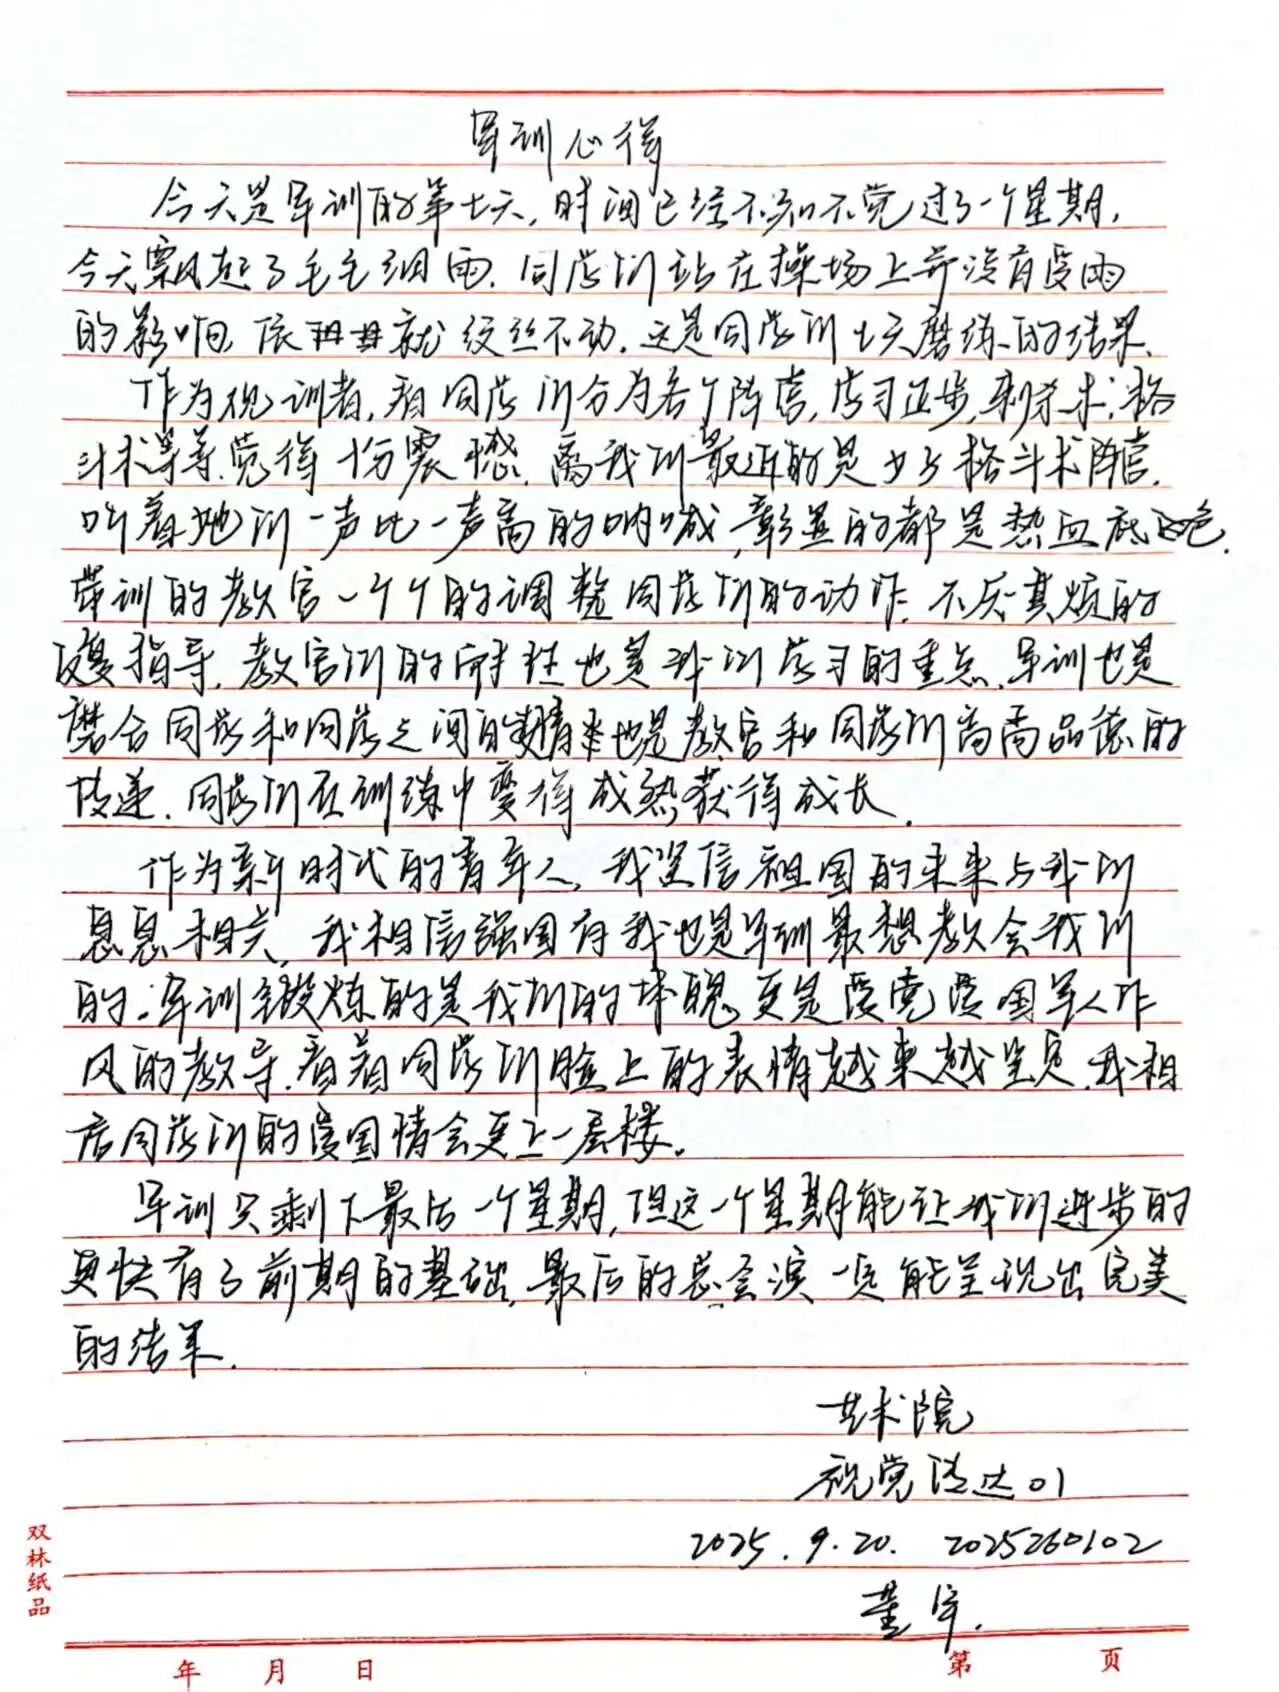 军训心得
今天是军训的第七天，时间已经不知不觉过了一个星期，
今天飘起了毛毛细雨．同学们站在操场上并没有受雨
的影响，依就纹丝不动．这是同学们七天磨练的结果．
作为观训者，看同学们分为各个阵营，学习正步，刺杀术，格
斗术等等，觉得十份震憾．离我们最近的是女子格斗术阵营．
听着她们一声比一声高的呐喊，彰显的都是热血底色．
带训的教官一个个的调整同学们的动作．不厌其烦的
反复指导．教官们的耐性也是我们学习的重点．军训也是
磨合同学和同学之间的情也是教官和同学们高尚品德的
传递．同学们在训练中变得成熟获得成长．
作为新时代的青年人，我坚信祖国的未来与我们
息息相关，我相信强国有我也是军训最想教会我们
的。军训锻炼的是我们的体魄，更是爱党爱国军人作
风的教导．看着同学们脸上的表情越来越坚定．我相
信同学们的爱国情会更上一层楼。
军训只剩下最后一个星期，但这一个星期能让我们进步的
更快有了前期的基础，最后的总会演一定能呈现出完美
的结果．
艺术院
视觉传达01
2025．9．20． 2025260102
董军．
双林纸品
年 月 日 第 页